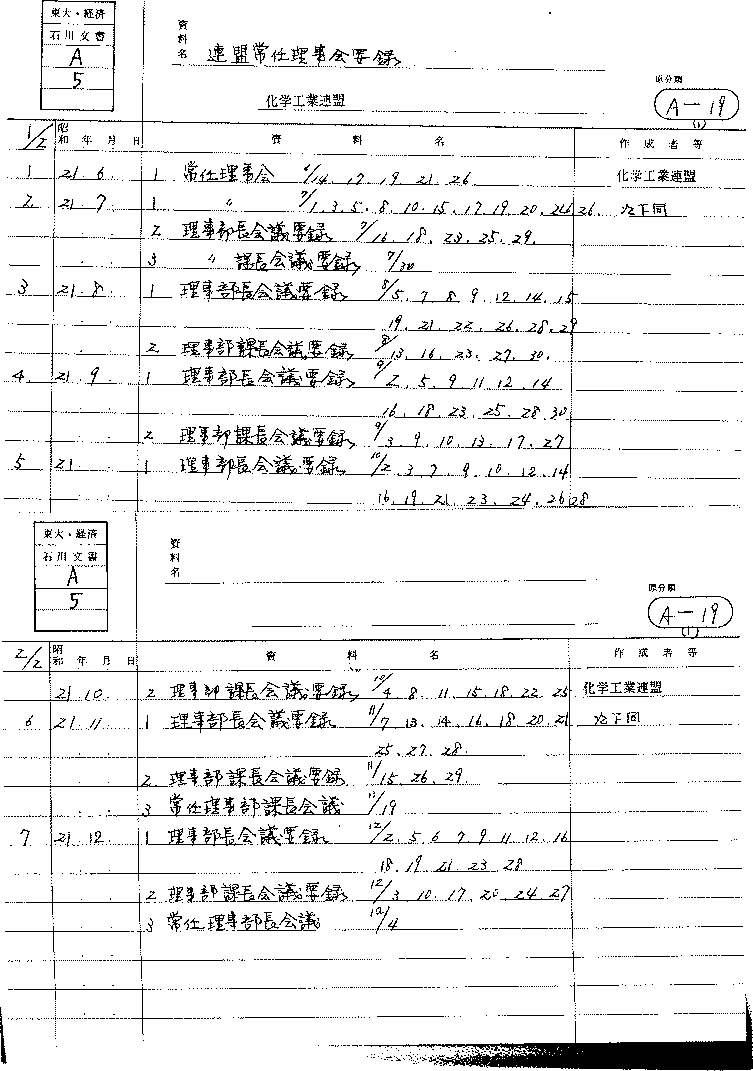 東大・経済
石川文書
A
5
資料名 連盟常任理事会要録
化学工業連盟
原分類
A-19
(1)
1/2 昭和 年 月 日 資 料 名 作成者等
1 21 6 1 常任理事会 6/14. 17. 19. 21. 26 化学工業連盟
2 21 7 1 〃 7/1. 3. 5. 8. 10. 15. 17. 19. 20. 26. 以下同
2 理事部長会議要録 7/16. 18. 23. 25. 29.
3 〃 課長会議要録 7/30
3 21 8 1 理事部長会議要録 8/5. 7. 8. 9. 12. 14. 15
19. 21. 22. 26. 28. 29
2 理事部課長会議要録 8/13. 16. 23. 27. 30.
4 21 9 1 理事部長会議要録 9/2. 5. 9. 11. 12. 14
16. 18. 23. 25. 28. 30
2 理事部課長会議要録 9/3. 9. 10. 13. 17. 27
5 21 1 理事部長会議要録 10/2. 3. 7. 9. 10. 12. 14
16. 19. 21. 23. 24. 26 28
東大・経済
石川文書
A
5
資料名
原分類
A-19
(1)
2/2 昭和 年 月 日 資 料 名 作成者等
21 10 2 理事部課長会議要録 10/4. 8. 11. 15. 18. 22. 25 化学工業連盟
6 21 11 1 理事部長会議要録 11/7. 13. 14. 16. 18. 20. 21 以下同
25. 27. 28.
2 理事部課長会議要録 11/15. 26. 29.
3 常任理事部課長会議 11/19
7 21 12 1 理事部長会議要録 12/2. 5. 6. 7. 9. 11. 12. 16
18. 19. 21. 23. 28
2 理事部課長会議要録 12/3. 10. 17. 20. 24. 27
3 常任理事部長会議 12/4